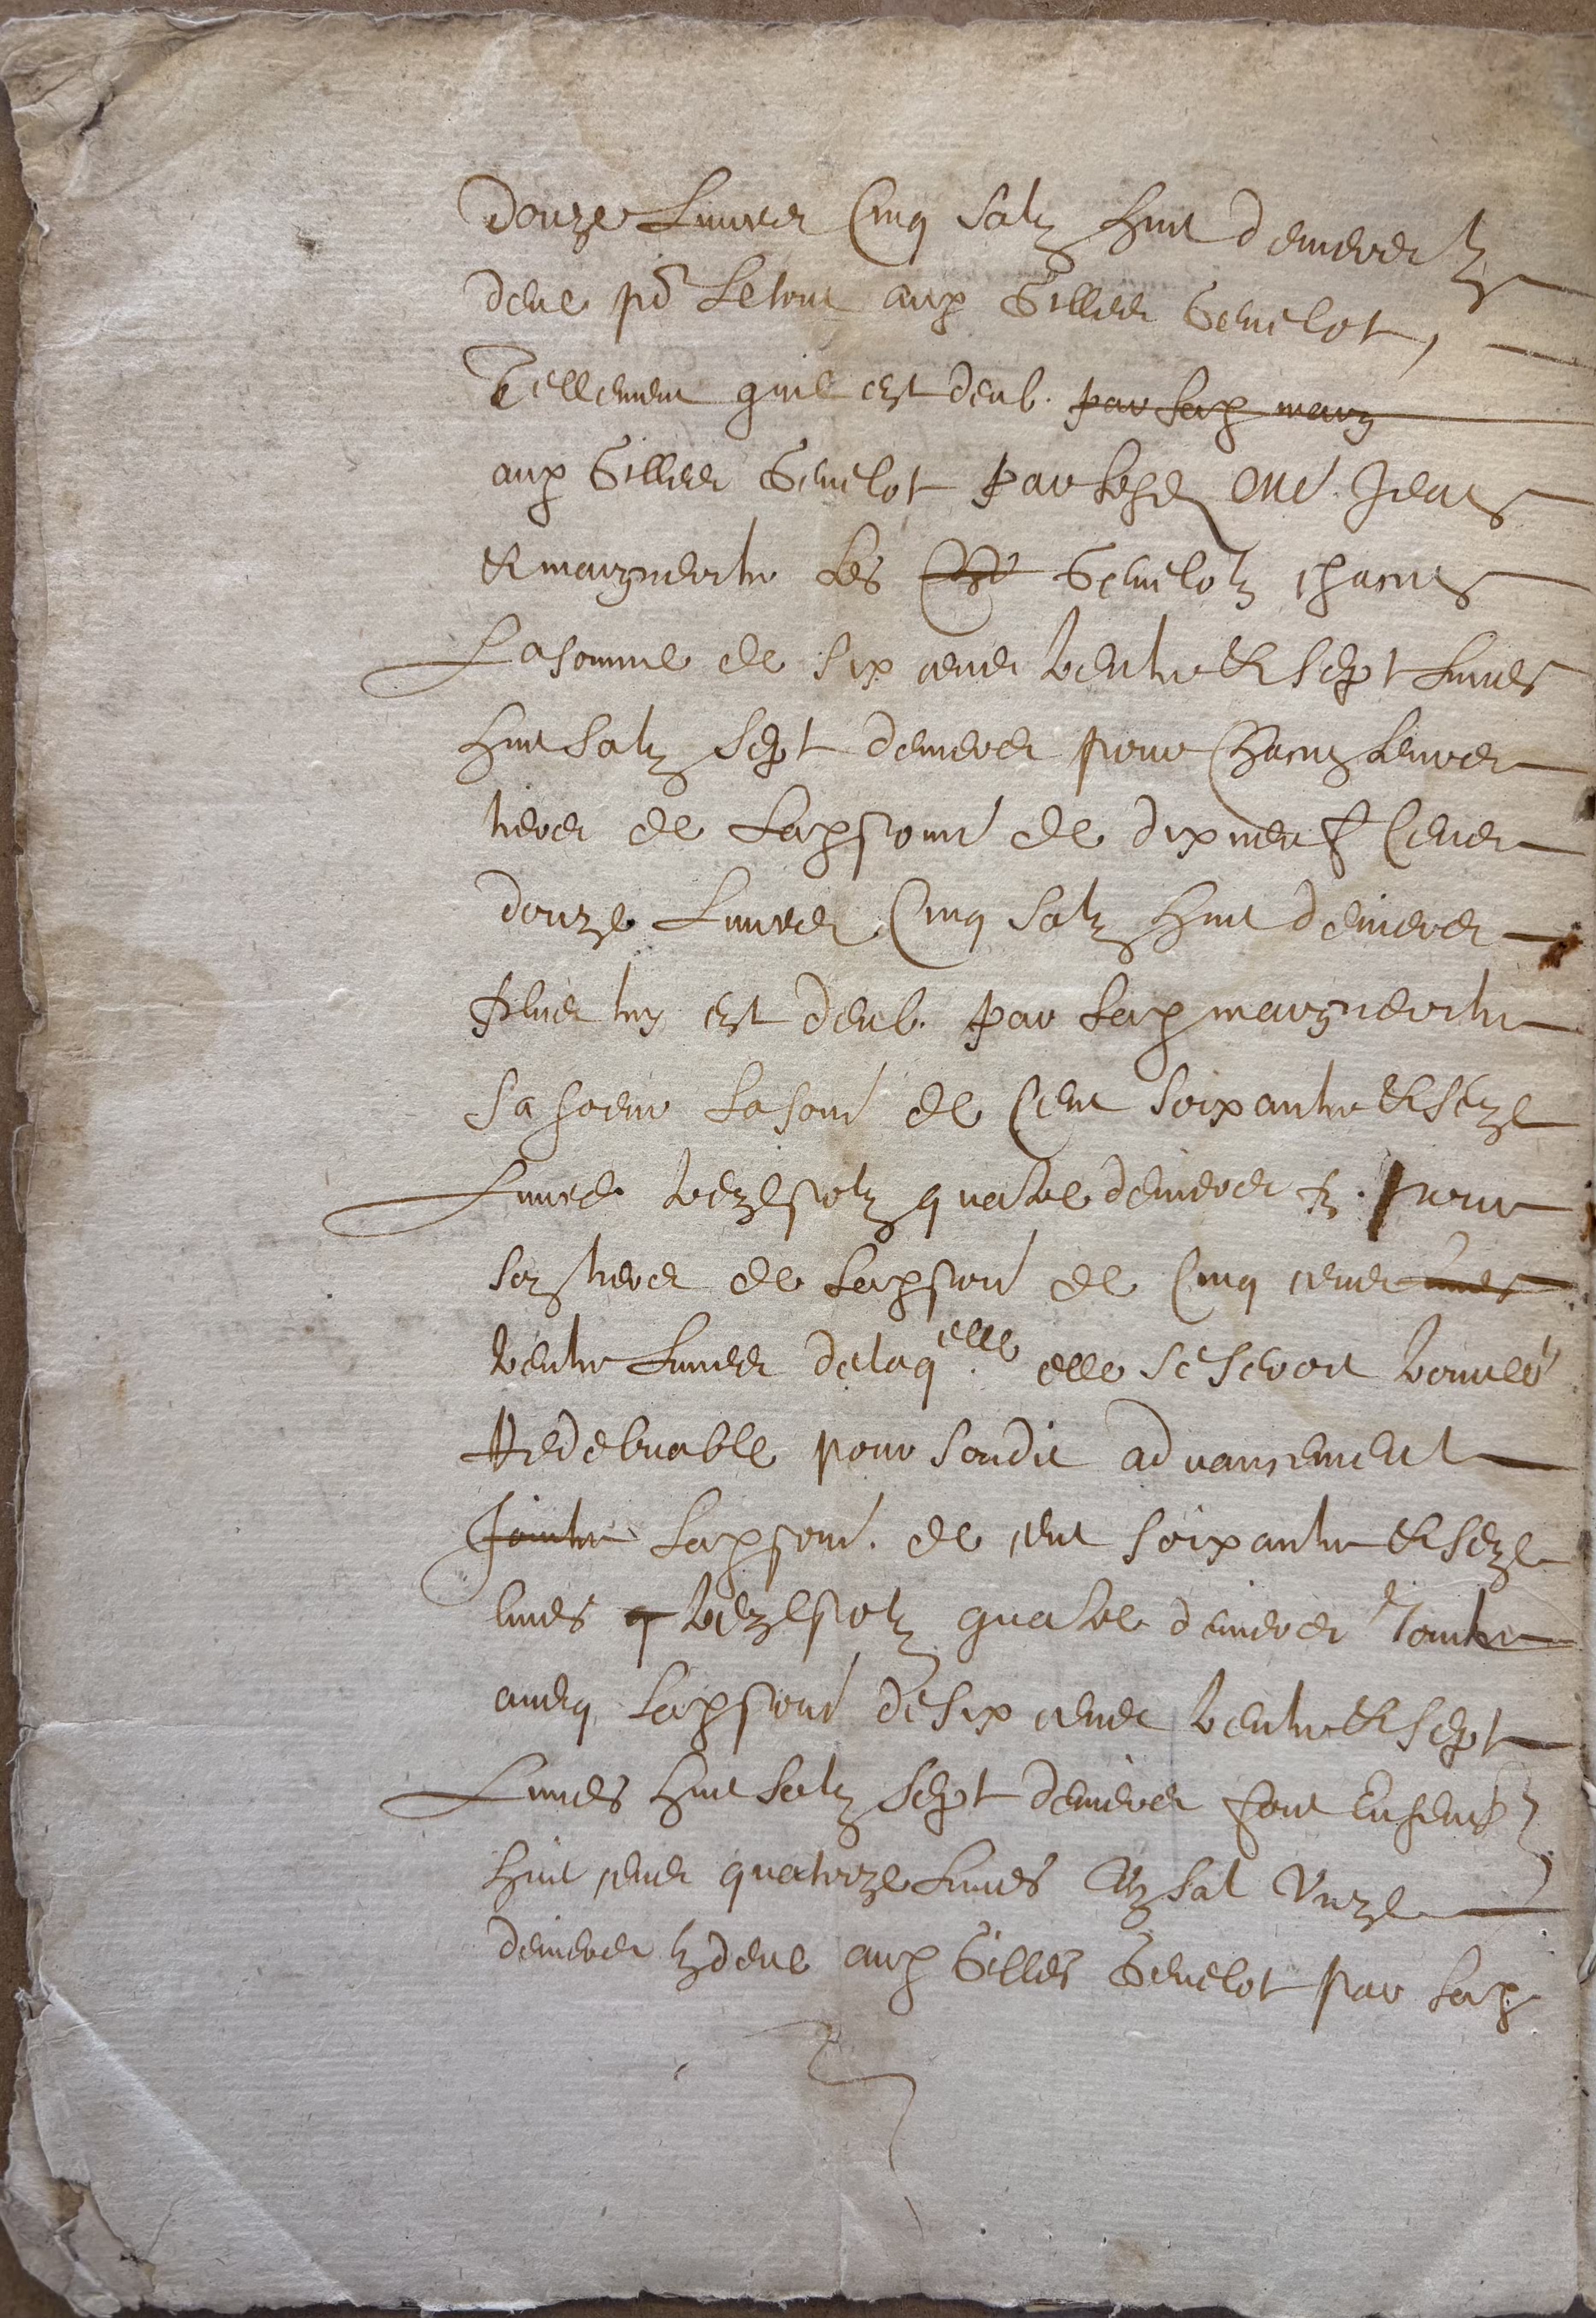 Douze Livres Cinq solz huit deniers tz
deue po^r Letout aud Gilles Genelot,
Tellement quil est deub. par lad marg
aud Gilles Genelot par lesd Me Jean
et marguerite les Genelotz chacun
La somme de six cens trente et sept Livres
huit solz sept deniers pour Chacun leurs
tiers de Lad som̃e de dix neuf Cens
douze Livres Cinq solz huit deniers
plus luy est deub. par lad marguerite
Sa soeur La som̃e de Cent soixante et seize
Livres treize solz quatre deniers tz. pour
son tiers de Lad som̃e de Cinq cens livres
trente Livres delaq^elle elle se seroit trouvée
Redebvable pour sondit advancement
Jointe Lad som̃e. de cent soixante et seize
livres q treize solz quatre deniers Jointe
avecq Lad som̃e de six cens trente et sept
Livres huit solz sept deniers font Ensemb
huit cens quatorze Livres Un sol Unze
deniers tz deue aud Gilles Genelot par lad